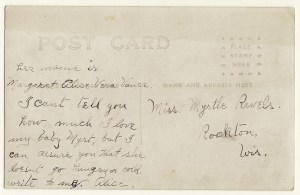 POST CARD
PLACE
STAMP
HERE
her name is
Margaret Alice Vera Vance.
NAME AND ADDRESS HERE
I cant tell you
how much I love
my baby Myrt, but I
can assure you that she
doesnt go hungry or cold.
write to me. Alice.
Miss. Myrtle Revels.
Rockton,
Wis.